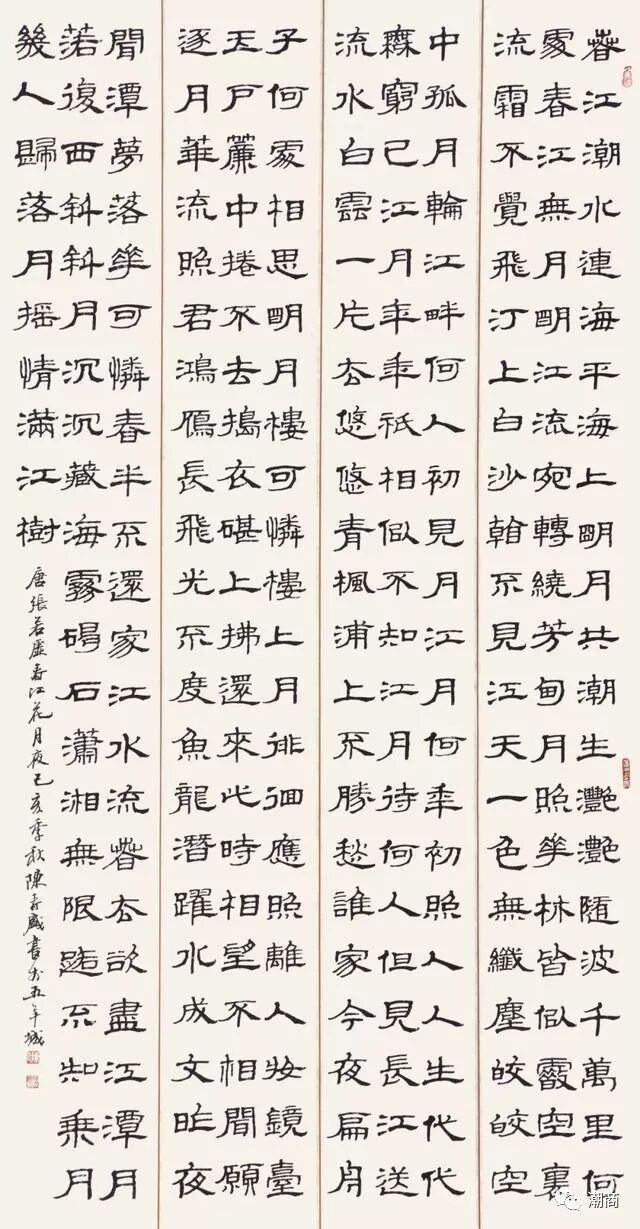 春江潮水連海平海上明月共潮生灧灧隨波千萬里何
處春江無月明江流宛轉繞芳甸月照華林皆似霰空裏
流霜不覺飛汀上白沙看不見江天一色無纖塵皎皎空
中孤月輪江畔何人初見月江月何年初照人人生代代
無窮已江月年年祇相似不知江月待何人但見長江送
流水白雲一片去悠悠青楓浦上不勝愁誰家今夜扁舟
子何處相思明月樓可憐樓上月徘徊應照離人妝鏡臺
玉戶簾中捲不去搗衣碪上拂還來此時相望不相聞願
逐月華流照君鴻雁長飛光不度魚龍潛躍水成文昨夜
閒潭夢落華可憐春半不還家江水流春去欲盡江潭月
落復西斜斜月沉沉藏海霧碣石瀟湘無限路不知乘月
幾人歸落月摇情滿江樹
唐張若虛春江花月夜己亥季秋陳壽盛書於五羊城
潮商